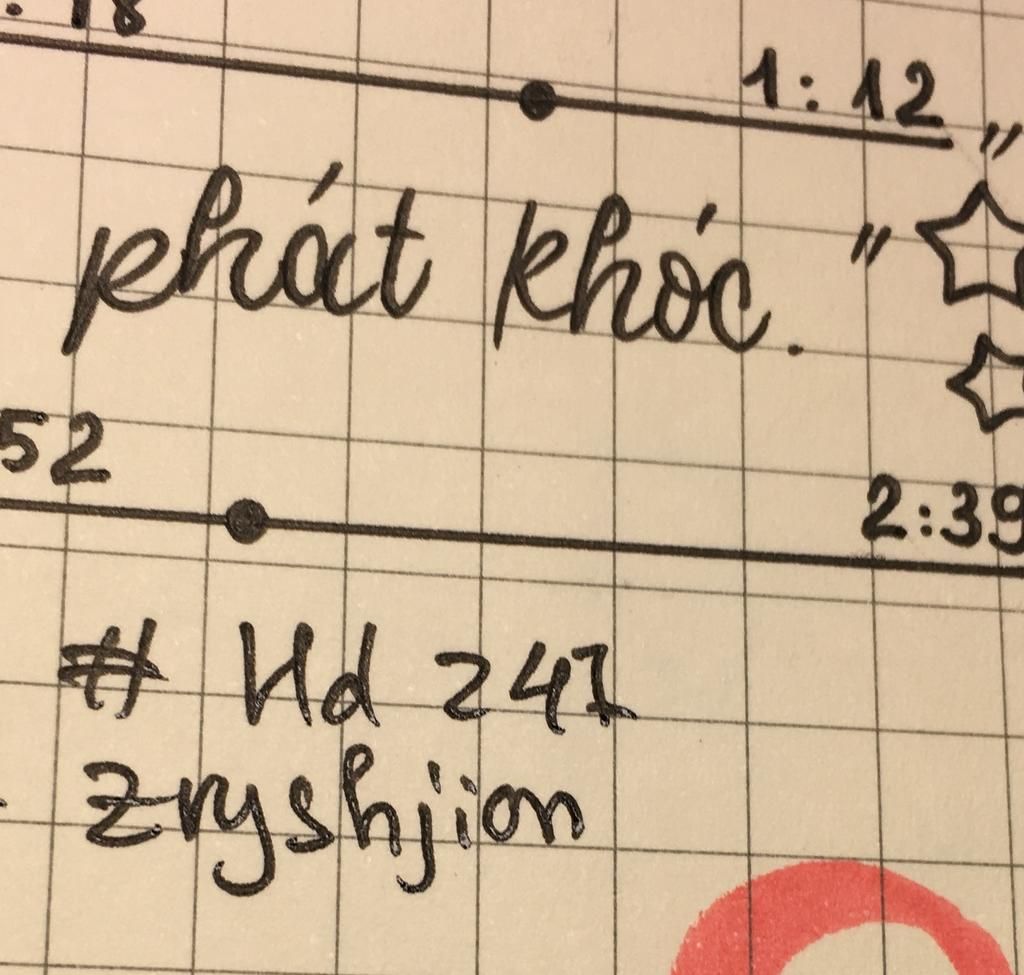 :18
1:12
"
phát khóc."
52
2:39
# Hd 247
Zryshjion